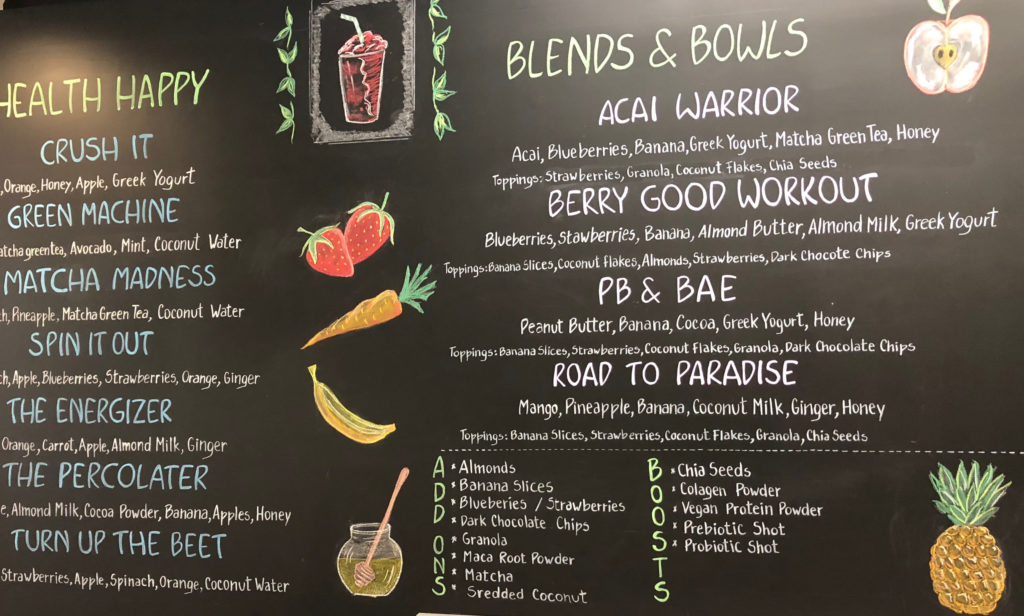 HEALTH HAPPY
CRUSH IT
Orange, Honey, Apple, Greek Yogurt
GREEN MACHINE
atcha green tea, Avocado, Mint, Coconut Water
MATCHA MADNESS
Pineapple, Matcha Green Tea, Coconut Water
SPIN IT OUT
Apple, Blueberries, Strawberries, Orange, Ginger
THE ENERGIZER
Orange, Carrot, Apple, Almond Milk, Ginger
THE PERCOLATER
Almond Milk, Cocoa Powder, Banana, Apples, Honey
TURN UP THE BEET
Strawberries, Apple, Spinach, Orange, Coconut Water
BLENDS & BOWLS
ACAI WARRIOR
Acai, Blueberries, Banana, Greek Yogurt, Matcha Green Tea, Honey
Toppings: Strawberries, Granola, Coconut Flakes, Chia Seeds
BERRY GOOD WORKOUT
Blueberries, Stawberries, Banana, Almond Butter, Almond Milk, Greek Yogurt
Toppings: Banana Slices, Coconut Flakes, Almonds, Strawberries, Dark Chocote Chips
PB & BAE
Peanut Butter, Banana, Cocoa, Greek Yogurt, Honey
Toppings: Banana Slices, Strawberries, Coconut Flakes, Granola, Dark Chocolate Chips
ROAD TO PARADISE
Mango, Pineapple, Banana, Coconut Milk, Ginger, Honey
Toppings: Banana Slices, Strawberries, Coconut Flakes, Granola, Chia Seeds
ADD ONS
* Almonds
* Banana Slices
* Blueberies / Strawberries
* Dark Chocolate Chips
* Granola
* Maca Root Powder
* Matcha
* Sredded Coconut
BOOSTS
* Chia Seeds
* Colagen Powder
* Vegan Protein Powder
* Prebiotic Shot
* Probiotic Shot